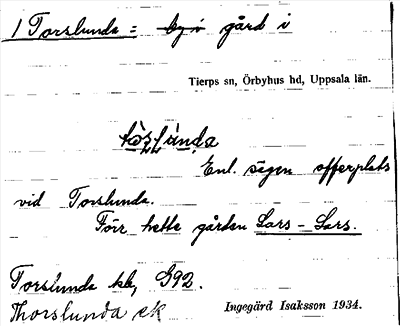 1 Torslunda = by i gård i
Tierps sn, Örbyhus hd, Uppsala län.
Enl. sägen offerplats
vid Torslunda.
Förr hette gården Lars-Lars.
Torslunda kb, G92.
Thorslunda ek
Ingegärd Isaksson 1934.